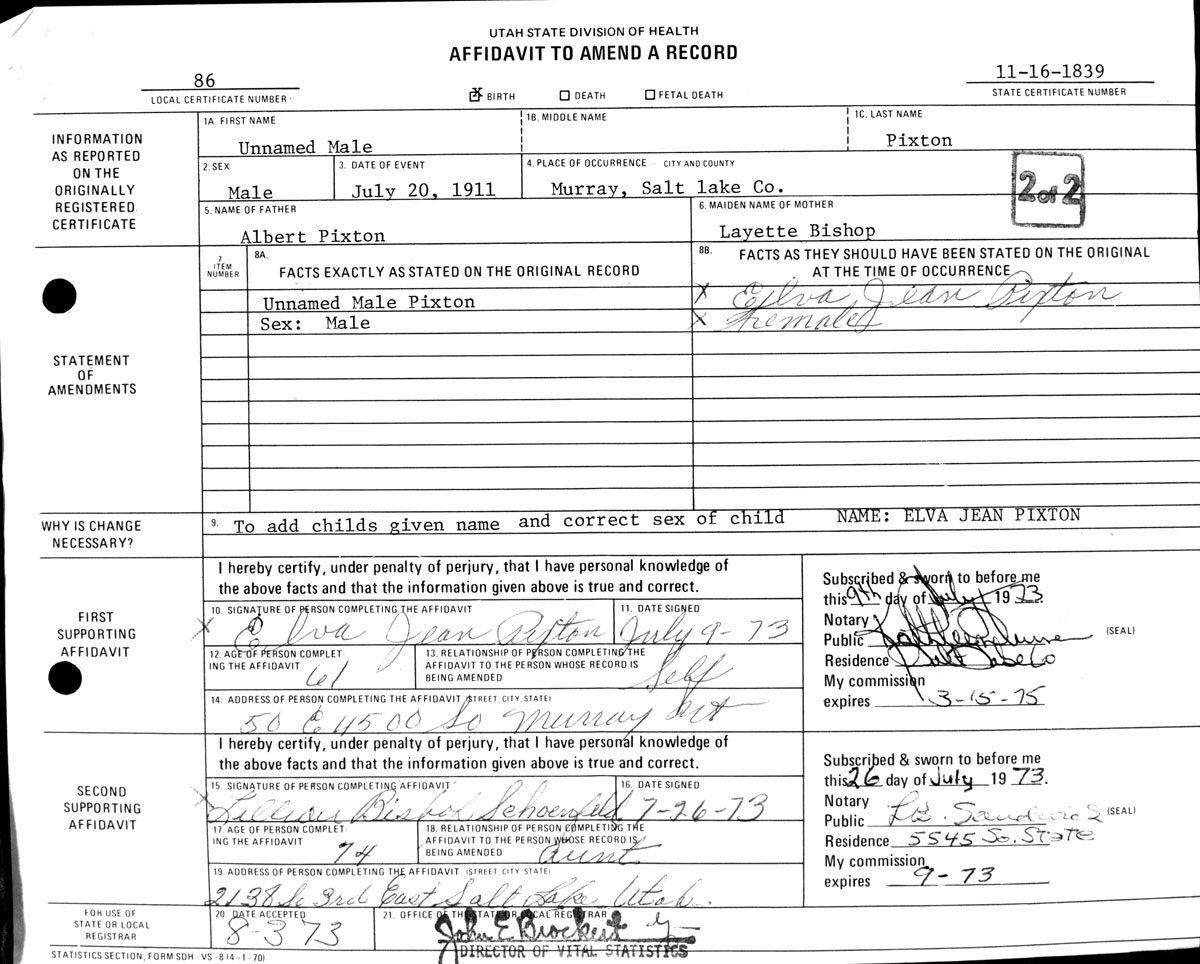 UTAH STATE DIVISION OF HEALTH
AFFIDAVIT TO AMEND A RECORD
86
LOCAL CERTIFICATE NUMBER
X BIRTH DEATH FETAL DEATH
11-16-1839
STATE CERTIFICATE NUMBER
INFORMATION
AS REPORTED
ON THE
ORIGINALLY
REGISTERED
CERTIFICATE
1A. FIRST NAME
Unnamed Male
1B. MIDDLE NAME
1C. LAST NAME
Pixton
2. SEX
Male
3. DATE OF EVENT
July 20, 1911
4. PLACE OF OCCURRENCE - CITY AND COUNTY
Murray, Salt lake Co.
2 of 2
5. NAME OF FATHER
Albert Pixton
6. MAIDEN NAME OF MOTHER
Layette Bishop
STATEMENT
OF
AMENDMENTS
7
ITEM
NUMBER
8A.
FACTS EXACTLY AS STATED ON THE ORIGINAL RECORD
8B. FACTS AS THEY SHOULD HAVE BEEN STATED ON THE ORIGINAL
AT THE TIME OF OCCURRENCE
Unnamed Male Pixton
X Elva Jean Pixton
Sex: Male
X Female
WHY IS CHANGE
NECESSARY?
9. To add childs given name and correct sex of child NAME: ELVA JEAN PIXTON
FIRST
SUPPORTING
AFFIDAVIT
I hereby certify, under penalty of perjury, that I have personal knowledge of
the above facts and that the information given above is true and correct.
10. SIGNATURE OF PERSON COMPLETING THE AFFIDAVIT
X Elva Jean Pixton
11. DATE SIGNED
July 9-73
12. AGE OF PERSON COMPLET-
ING THE AFFIDAVIT
61
13. RELATIONSHIP OF PERSON COMPLETING THE
AFFIDAVIT TO THE PERSON WHOSE RECORD IS
BEING AMENDED
Self
14. ADDRESS OF PERSON COMPLETING THE AFFIDAVIT (STREET, CITY, STATE)
50 E 4500 So Murray Ut
Subscribed & sworn to before me
this 9th day of July 1973.
Notary
Public (SEAL)
Residence Salt Lake Co
My commission
expires 3-15-75
SECOND
SUPPORTING
AFFIDAVIT
I hereby certify, under penalty of perjury, that I have personal knowledge of
the above facts and that the information given above is true and correct.
15. SIGNATURE OF PERSON COMPLETING AFFIDAVIT
X Lillian Bishop Schoenfeld
16. DATE SIGNED
7-26-73
17. AGE OF PERSON COMPLET-
ING THE AFFIDAVIT
74
18. RELATIONSHIP OF PERSON COMPLETING THE
AFFIDAVIT TO THE PERSON WHOSE RECORD IS
BEING AMENDED
aunt
19. ADDRESS OF PERSON COMPLETING THE AFFIDAVIT (STREET, CITY, STATE)
2138 So 3rd East Salt Lake Utah.
Subscribed & sworn to before me
this 26 day of July 1973.
Notary
Public (SEAL)
Residence 5545 So. State
My commission
expires 9-73
FOR USE OF
STATE OR LOCAL
REGISTRAR
20. DATE ACCEPTED
8-3 73
21. OFFICE OF THE STATE OR LOCAL REGISTRAR
John E Brockert
DIRECTOR OF VITAL STATISTICS
STATISTICS SECTION, FORM SDH - VS - 8 (4-1-70)